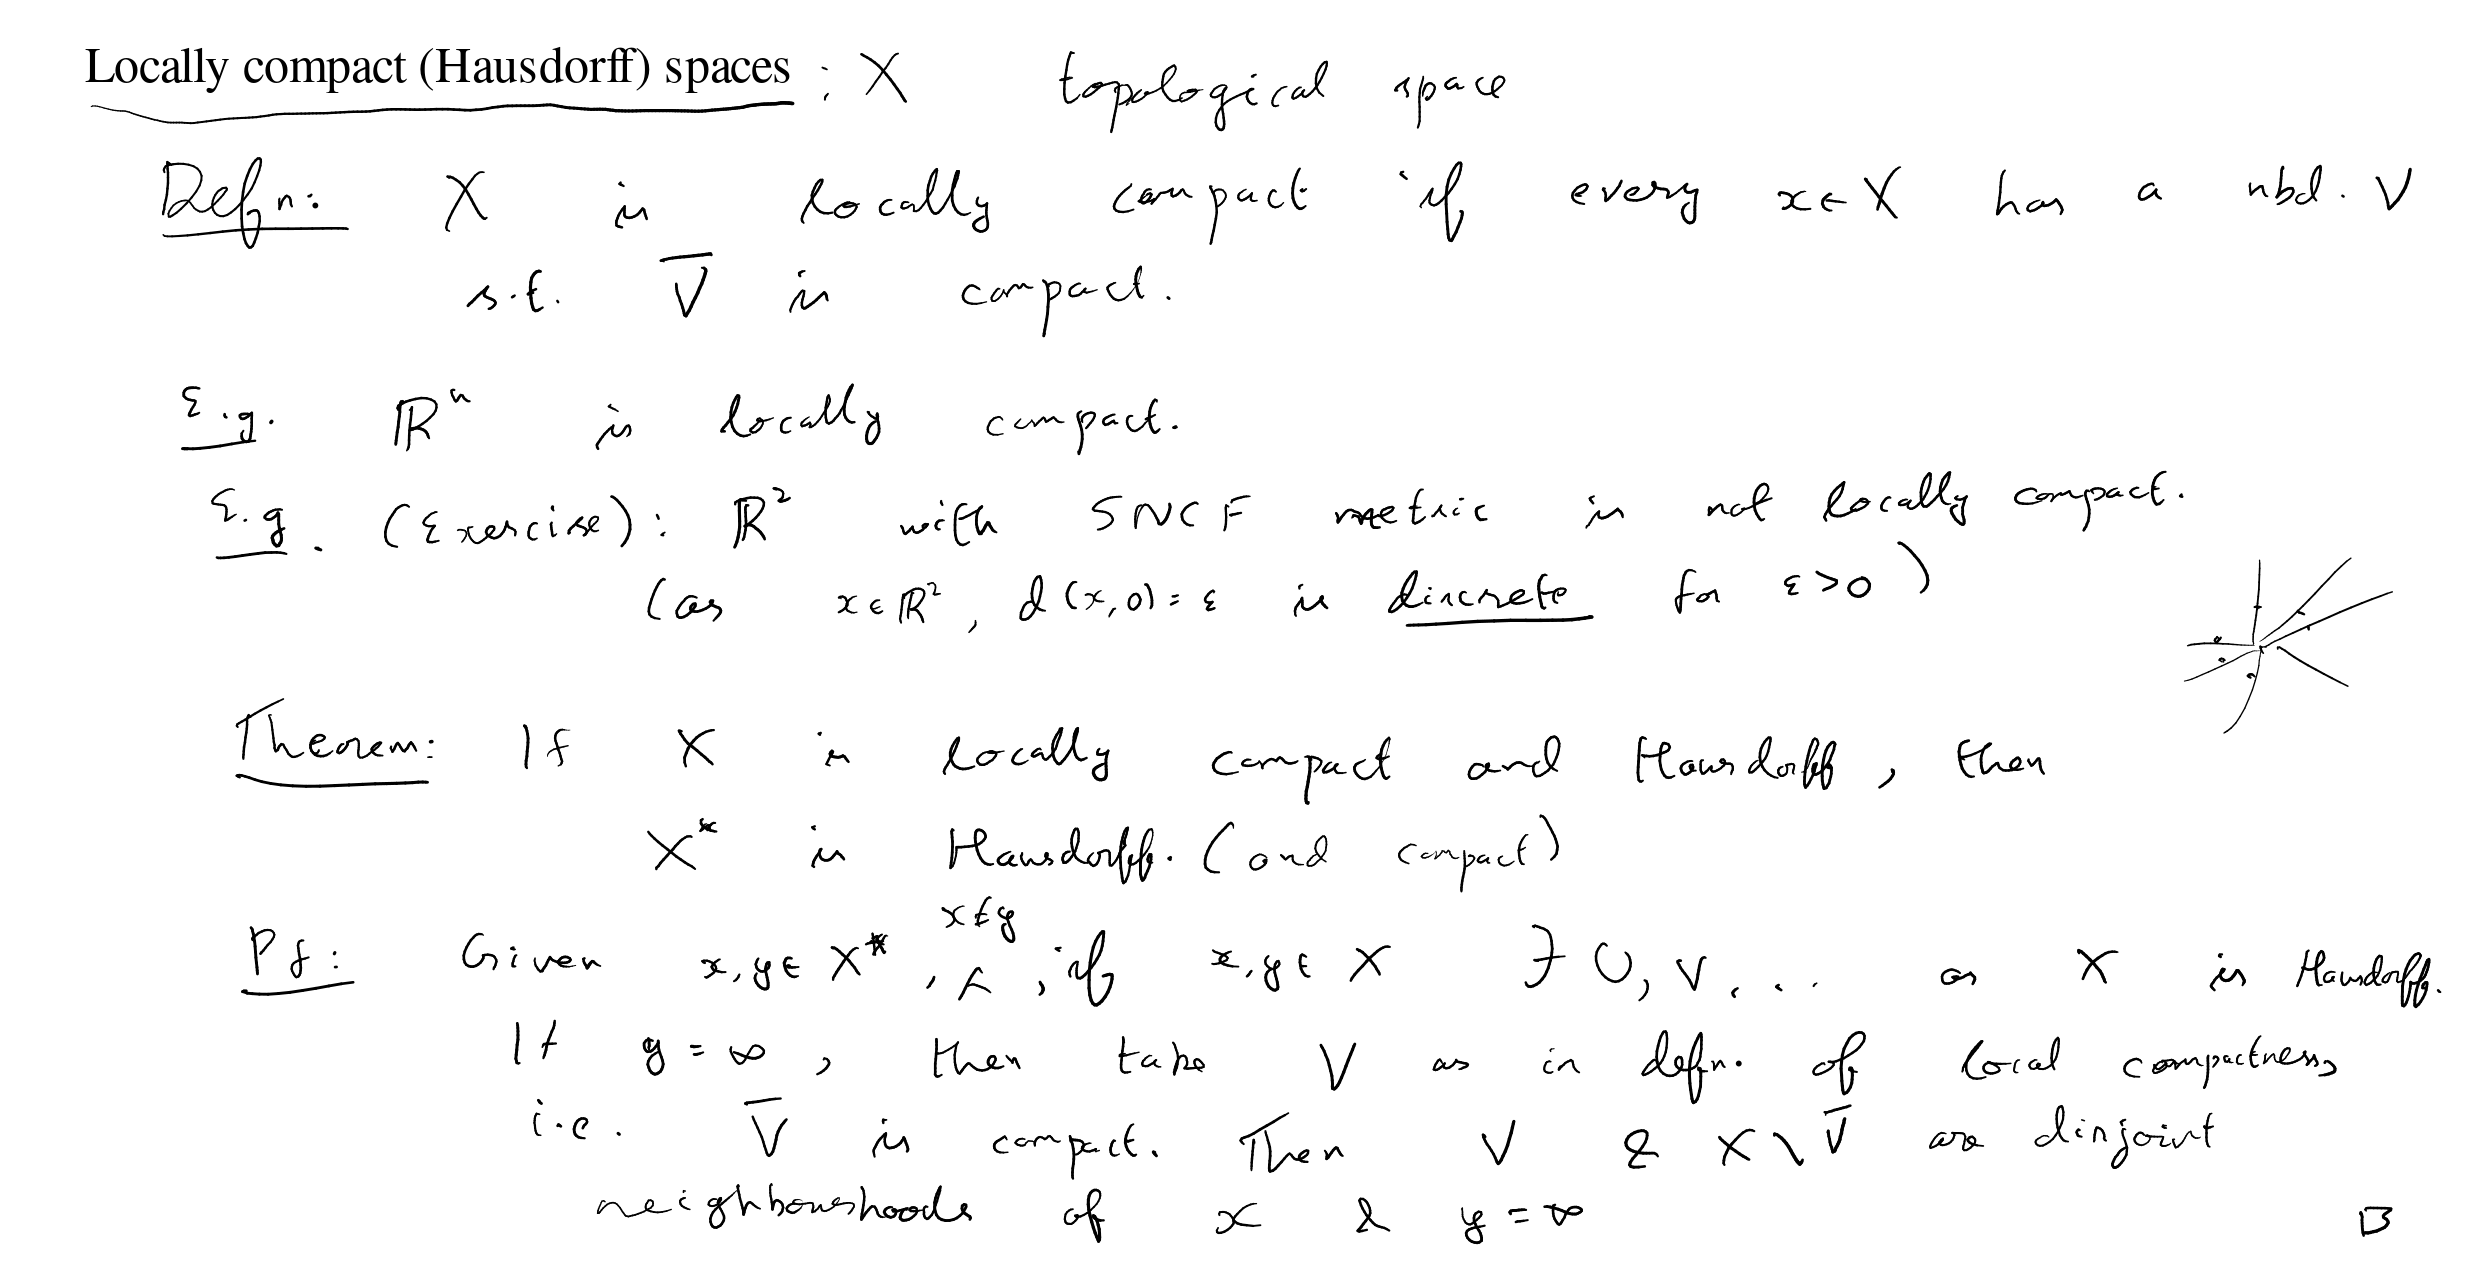 Locally compact (Hausdorff) spaces : X topological space
Defn: X is locally compact if every x ∈ X has a nbd. V
s.t. V̅ is compact.
E.g. ℝⁿ is locally compact.
E.g. (Exercise): ℝ² with SNCF metric is not locally compact.
(as x ∈ ℝ², d(x,0) = ε is discrete for ε > 0)
Theorem: If X is locally compact and Hausdorff, then
X* is Hausdorff. (and compact)
Pf: Given x, y ∈ X*, x ≠ y, if x, y ∈ X ∃ U, V, ... as X is Hausdorff.
If y = ∞, then take V as in defn. of local compactness,
i.e. V̅ is compact. Then V & X \ V̅ are disjoint
neighbourhoods of x & y = ∞ □